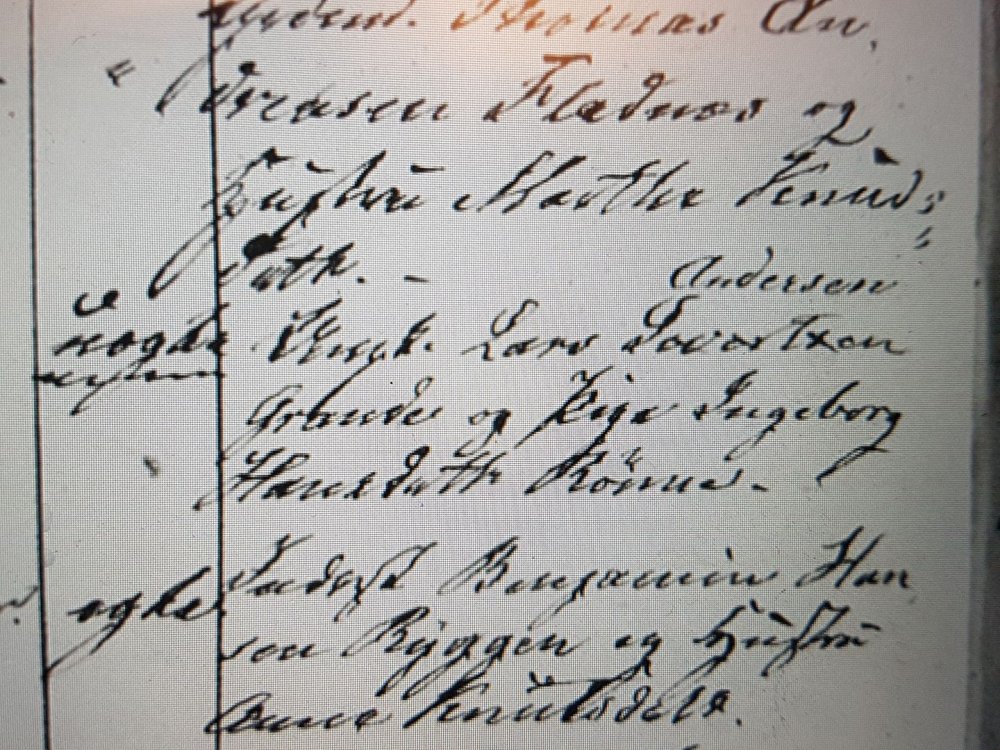 Thomas An,
dreasen Fladnæs og
Hustru Marthe Knuds-
datk. -
Andersen
Ungk. Lars Sivertsen
Grunde og Pige Ingeborg
Hansdatk Rönne. -
ægte
Inderst Benjamin Han
sen Ryggen og Hustru
Anne Knutsdatr.